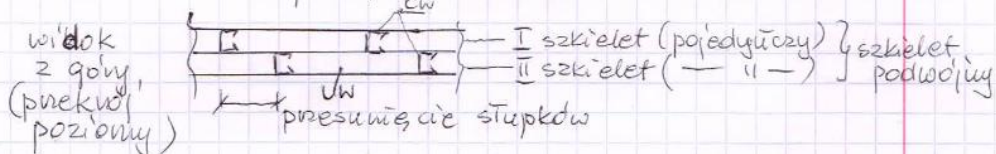 CW
widok
z góry
(przekrój
poziomy)
I szkielet (pojedyńczy) } szkielet
II szkielet ( — 11 — ) podwójny
UW
przesunięcie słupków